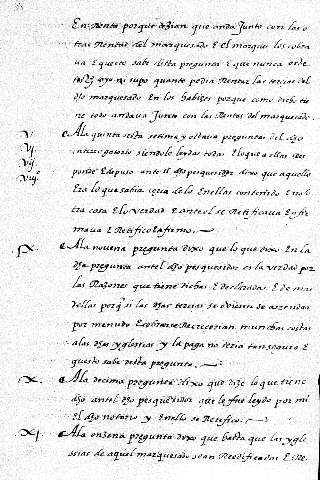 En Renta porque dezian que anda Junto con las o
tras Rentas del marquesado E el marques los cobra
va E questo sabe desta pregunta E que nunca
oyo ni supo quanto podia Rentar las tercias del
dho marquesado En los porque como dicho tie
ne todo andava Junto con las Rentas del marquesado.
V. A la quinta sesta setima y otava preguntas del dho
vj. interrogatorio siendole leydas todas E lo que a ellas Res
vij. ponde E depuso ante el dho pesquesidor dixo que aquello
viij. Era lo que sabia cerca de lo En ellas contenido E no o
tra cosa E lo verdad E ante el se Retificava E afir
mava E Retifico E afirmo.
jX. A la novena pregunta dixo que lo que dixo En la
dha pregunta ante el dho pesquesidor es la verdad por
las Razones que tiene dichas E declaradas E de mas
dellas porq si las dhas tercias se oviesen de arrendar
por menudo E cobrarse Recrecerian munchas costas
a las dhas yglesias y la paga no seria tan segura E
questo sabe desta pregunta.
X. A la decima pregunta dixo que dize lo que tiene
dho ante el dho pesquesidor el qual le fue leydo por mi
el dho notario y En ello se Retifico.
Xj. A la onzena pregunta dixo que basta que las ygle
sias de aquel marquesado sean Reedificadas E Re